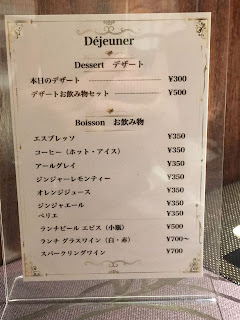 Déjeuner
Dessert デザート
本日のデザート ¥300
デザートお飲み物セット ¥500
Boisson お飲み物
エスプレッソ ¥350
コーヒー（ホット・アイス） ¥350
アールグレイ ¥350
ジンジャーレモンティー ¥350
オレンジジュース ¥350
ジンジャエール ¥350
ペリエ ¥350
ランチビール エビス（小瓶） ¥500
ランチ グラスワイン（白・赤） ¥700～
スパークリングワイン ¥700